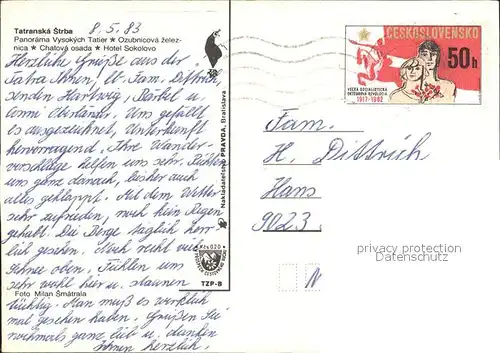 Tatranská Štrba 8.5.83
Panoráma Vysokých Tatier ★ Ozubnicová želez-
nica ★ Chatová osada ★ Hotel Sokolovo
Herzliche Grüße aus der
Tatra Ihnen, lb. Fam. Dittrich,
senden Hartwig, Bärbel u.
Uns gefällt
es ausgezeichnet, Unterkunft
hervorragend, Ihre Wander-
vorschläge helfen uns sehr,
uns ganz danach, bisher auch
alles geklappt. Mit dem Wetter
sehr zufrieden, noch kein Regen
gehabt. Die Berge täglich herr-
lich gesehen. Noch recht viel
Schnee oben. Fühlen uns
sehr wohl hier u. staunen
tüchtig. Man muß es wirklich
mal gesehen haben. Grüßen Sie
nochmals ganz lieb u. danken
Ihnen herzlich.
Foto Milan Šmátrala
Nakladateľstvo PRAVDA, Bratislava
Kčs 020
TZP-B
ČESKOSLOVENSKO
50 h
VEĽKÁ SOCIALISTICKÁ
OKTÓBROVÁ REVOLÚCIA
1917-1982
Fam.
H. Dittrich
Hans
9023
privacy protection
watermark